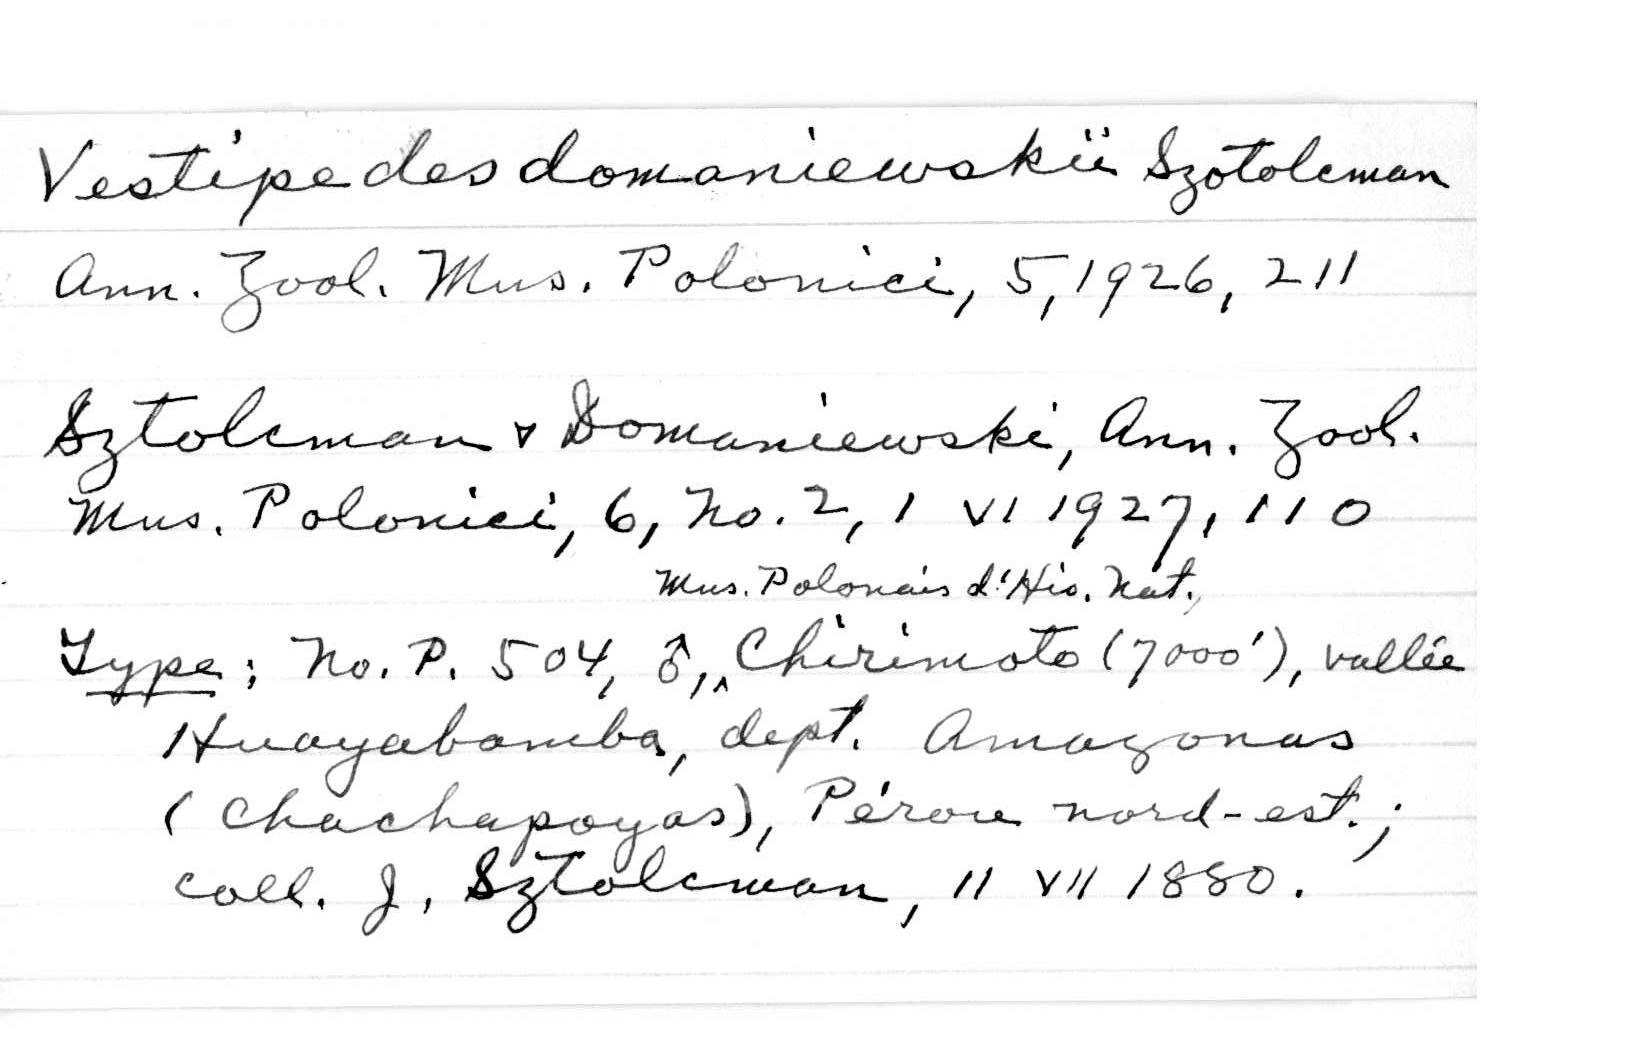 Vestipedes domaniewskii Szotolcman
Ann. Zool. Mus. Polonici, 5, 1926, 211
Sztolcman & Domaniewski, Ann. Zool.
Mus. Polonici, 6, No. 2, 1 VI 1927, 110
Mus. Polonais d'His. Nat.,
Type; No. P. 504, ♂, ^ Chirimoto (7000'), vallée
Huayabamba, dept. Amazonas
(Chachapoyas), Pérou nord-est.;
coll. J. Sztolcman, 11 VII 1880.